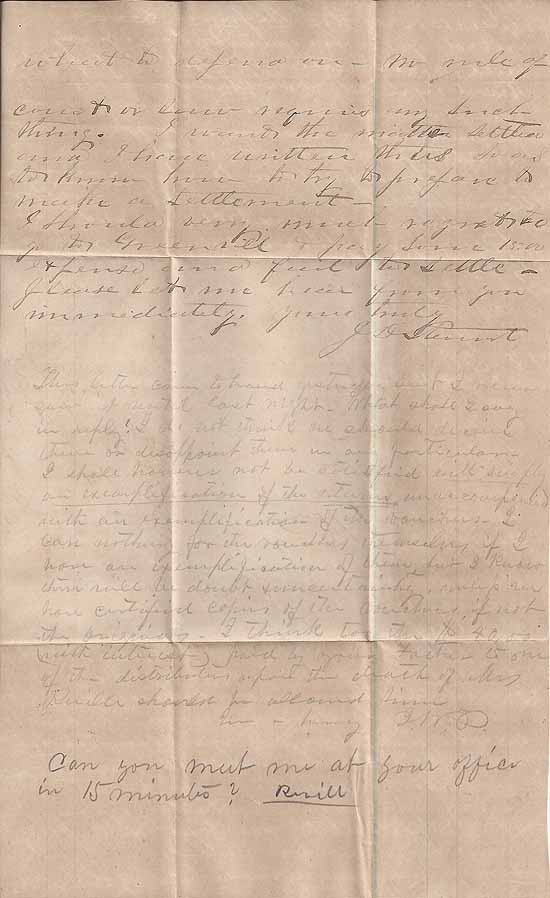 what to defend on – No rule of
court or law requires any such
thing. I want the matter settled
and I have written this so as
to know how to try to prepare to
make a settlement –
I should very much regret to
go to Greenville & pay some 15.00
expense and fail to settle –
Please let me hear from you
immediately. Yours truly
J D Stewart
This letter came to hand yesterday but I
until last night. What shall I say
in reply? I do not think we should deceive
them or disappoint them in any particular.
I shall however not be satisfied with simply
an exemplification of the returns unaccompanied
with an exemplification of the vouchers. I
can nothing for the vouchers themselves if I
have an exemplification of them, but I know
there will be doubt & uncertainty, unless we
have certified copies of the vouchers, if not
the originals – I think too the $40.
with interest paid by your
of the distributors upon the death of Mrs
should be allowed him
in a hurry
Can you meet me at your office
in 15 minutes? Revill